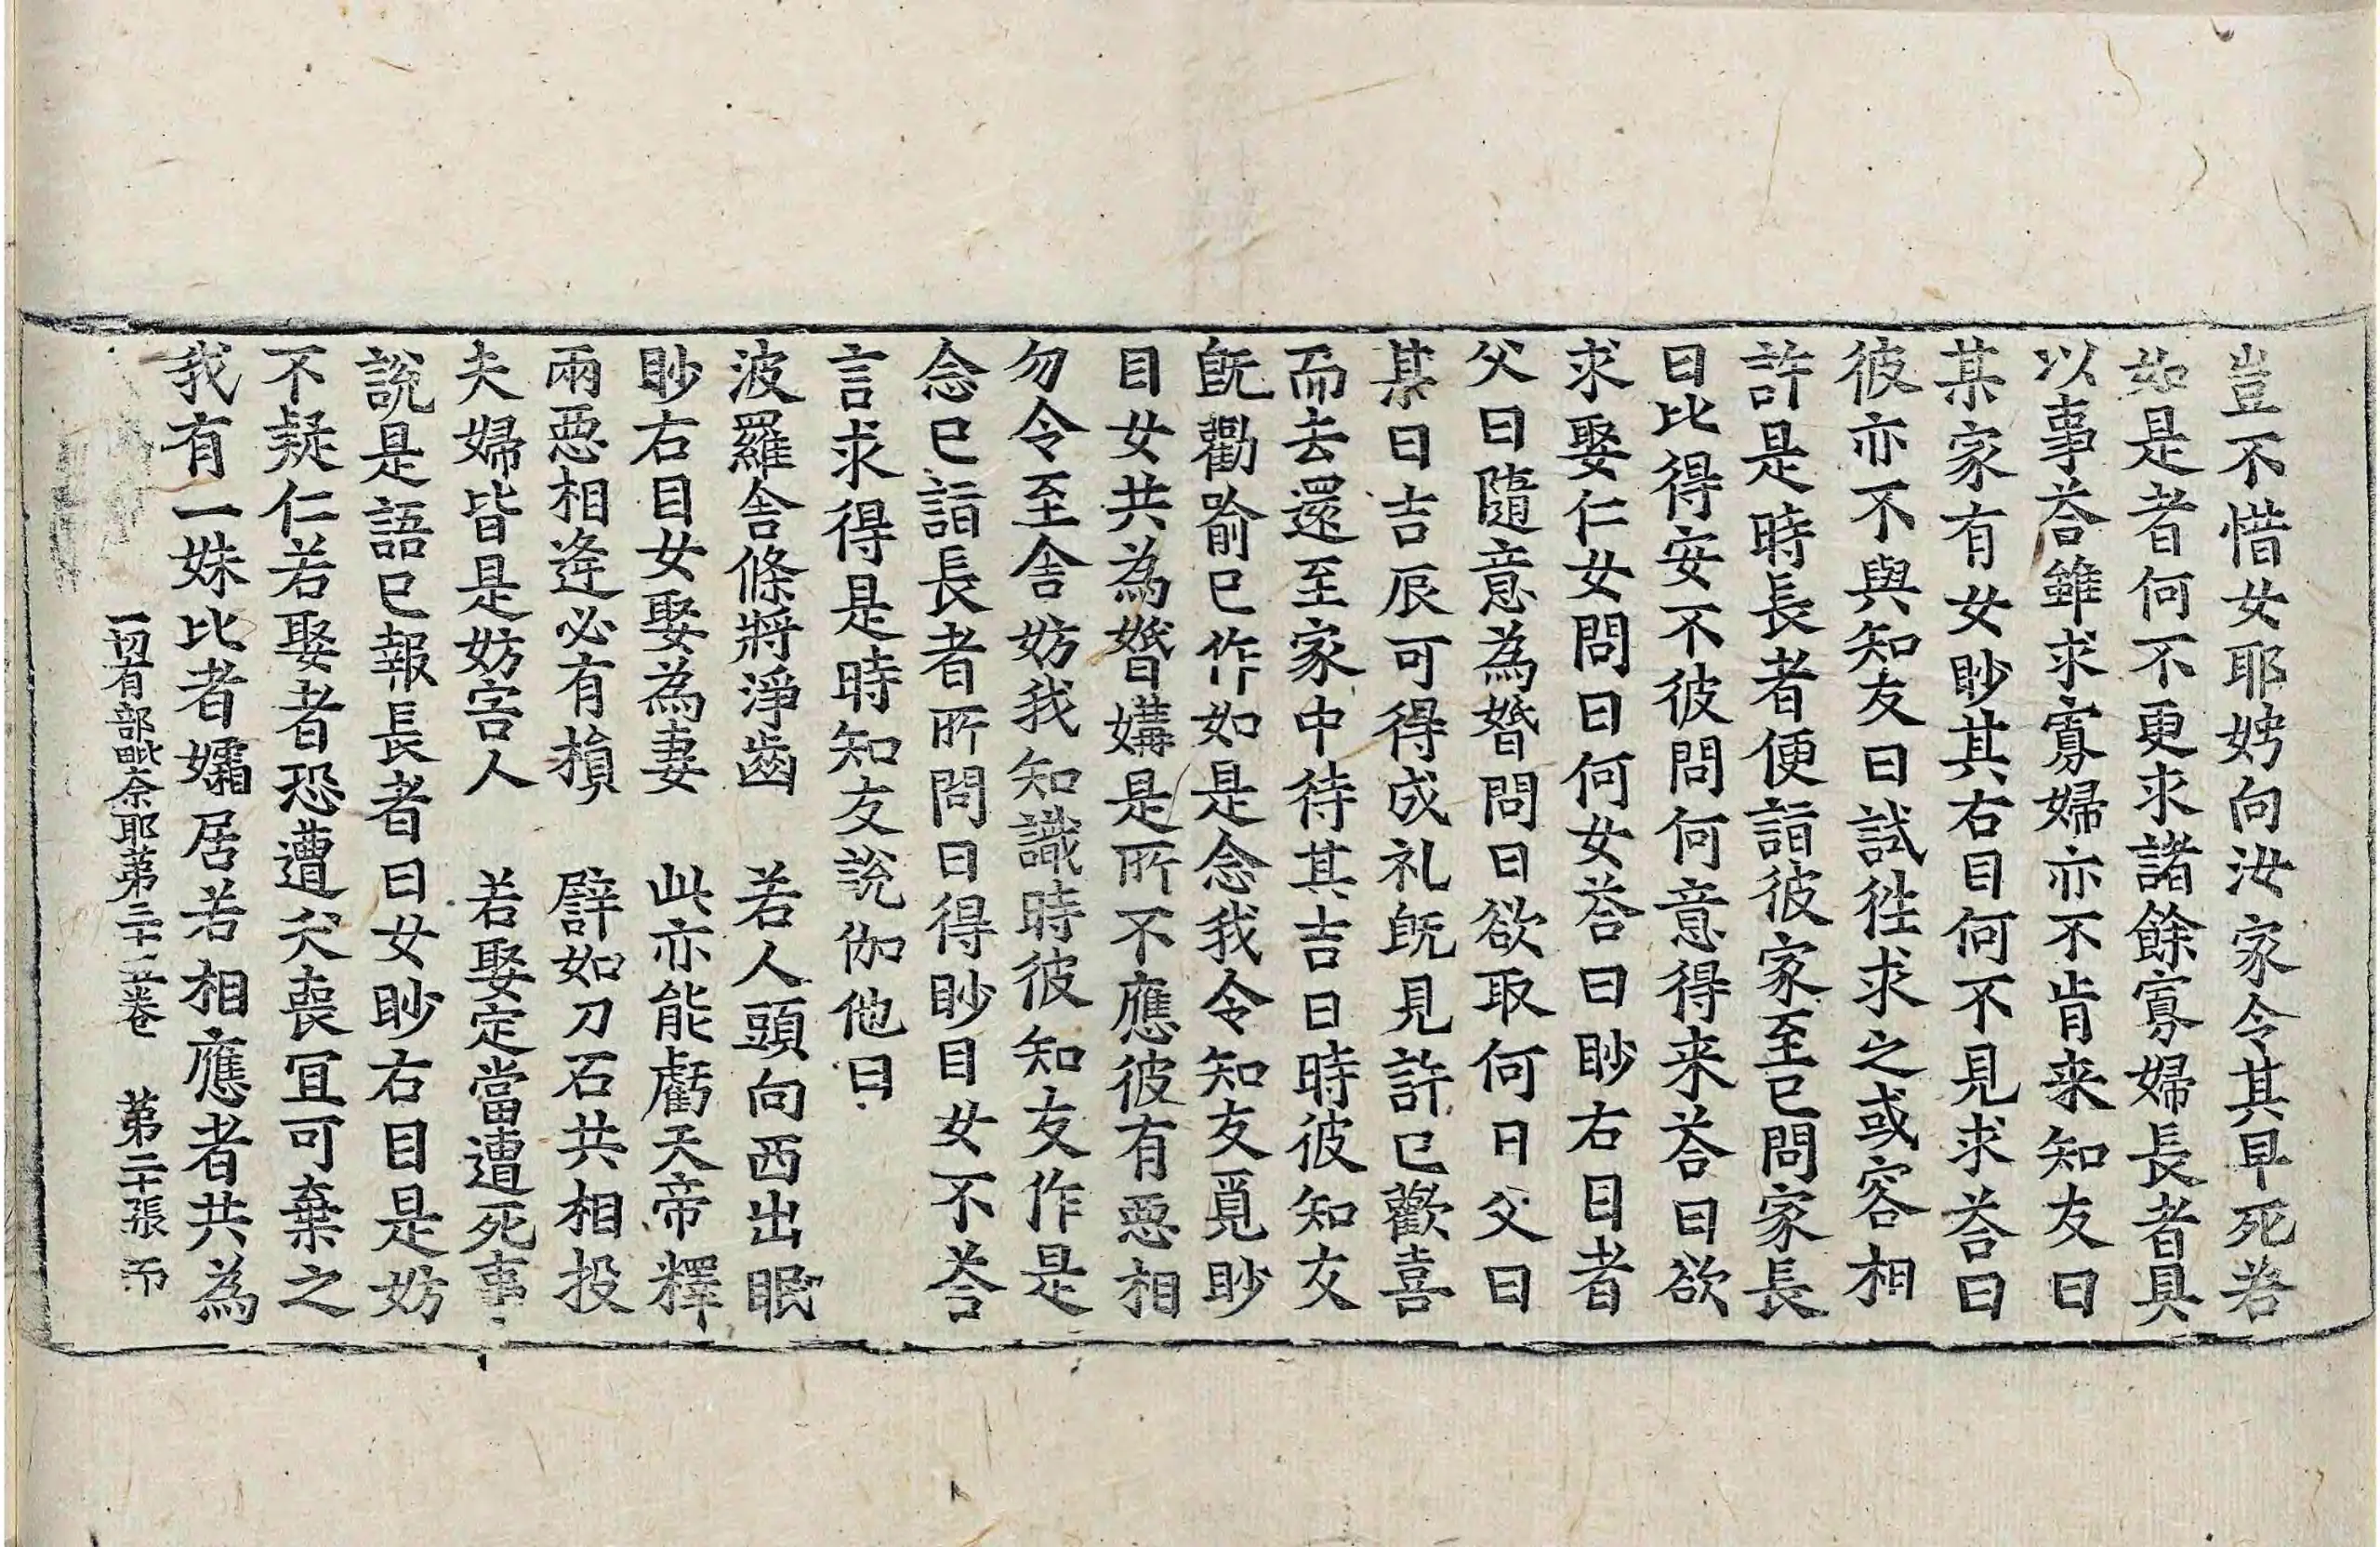 豈不惜女耶娉向汝家令其早死若
如是者何不更求諸餘寡婦長者具
以事荅雖求寡婦亦不肯来知友曰
某家有女眇其右目何不見求荅曰
彼亦不與知友曰試徃求之或容相
許是時長者便詣彼家至已問家長
曰比得安不彼問何意得来荅曰欲
求娶仁女問曰何女荅曰眇右目者
父曰隨意為婚問曰欲取何日父曰
某日吉辰可得成礼旣見許已歡喜
而去還至家中待其吉日時彼知友
旣勸喻已作如是念我令知友覓眇
目女共為婚媾是所不應彼有惡相
勿令至舍妨我知識時彼知友作是
念已詣長者所問曰得眇目女不荅
言求得是時知友說伽他曰
波羅舍條將淨齒　若人頭向西出眠
眇右目女娶為妻　此亦能虧天帝釋
兩惡相逢必有損　譬如刀石共相投
夫婦皆是妨害人　若娶定當遭死事
說是語已報長者曰女眇右目是妨
不疑仁若娶者恐遭灾喪冝可棄之
我有一妹比者孀居若相應者共為
一切有部毗奈耶苐二十五卷　苐二十張　不